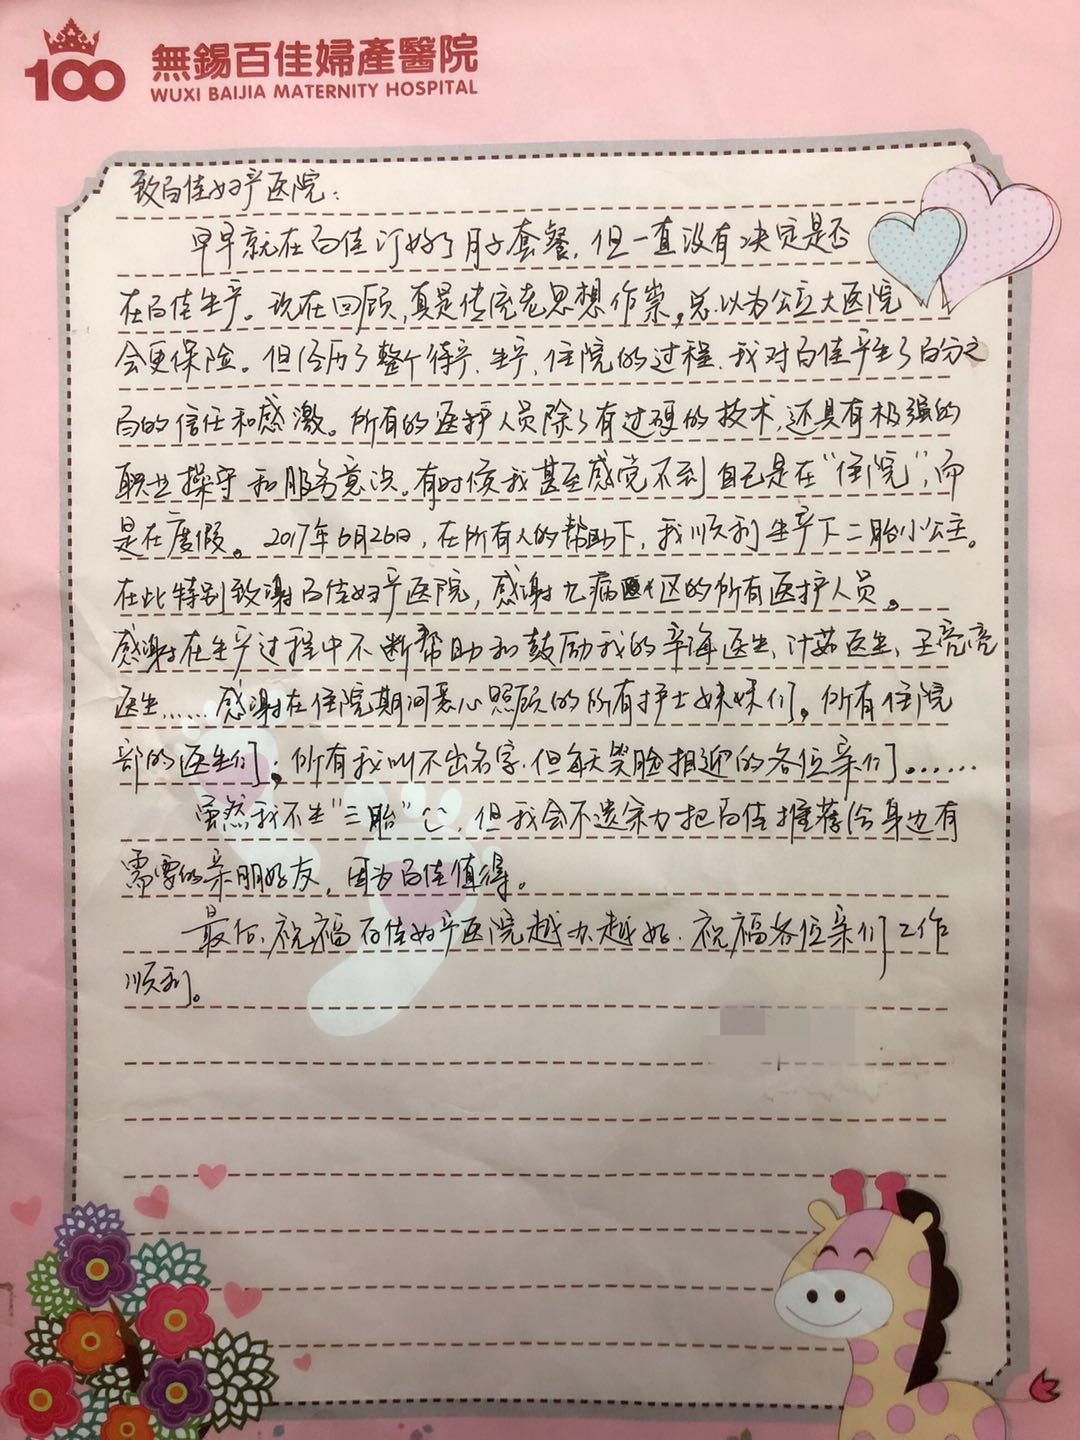 100
無錫百佳婦產醫院
WUXI BAIJIA MATERNITY HOSPITAL
致百佳妇产医院：
早早就在百佳订好了月子套餐，但一直没有决定是否
在百佳生产。现在回顾，真是传统老思想作祟，总以为公立大医院
会更保险。但经历了整个待产、生产、住院的过程，我对百佳产生了百分之
百的信任和感激。所有的医护人员除了有过硬的技术，还具有极强的
职业操守和服务意识。有时候我甚至感觉不到自己是在“住院”，而
是在度假。2017年6月26日，在所有人的帮助下，我顺利生产下二胎小公主。
在此特别致谢百佳妇产医院，感谢九病区的所有医护人员。
感谢在生产过程中不断帮助和鼓励我的辛海医生、计茹医生、王亮亮
医生……感谢在住院期间悉心照顾的所有护士妹妹们，所有住院
部的医生们，所有我叫不出名字，但每天笑脸相迎的各位亲们……
虽然我不生“三胎”，但我会不遗余力把百佳推荐给身边有
需要的亲朋好友，因为百佳值得。
最后，祝福百佳妇产医院越办越好，祝福各位亲们工作
顺利。